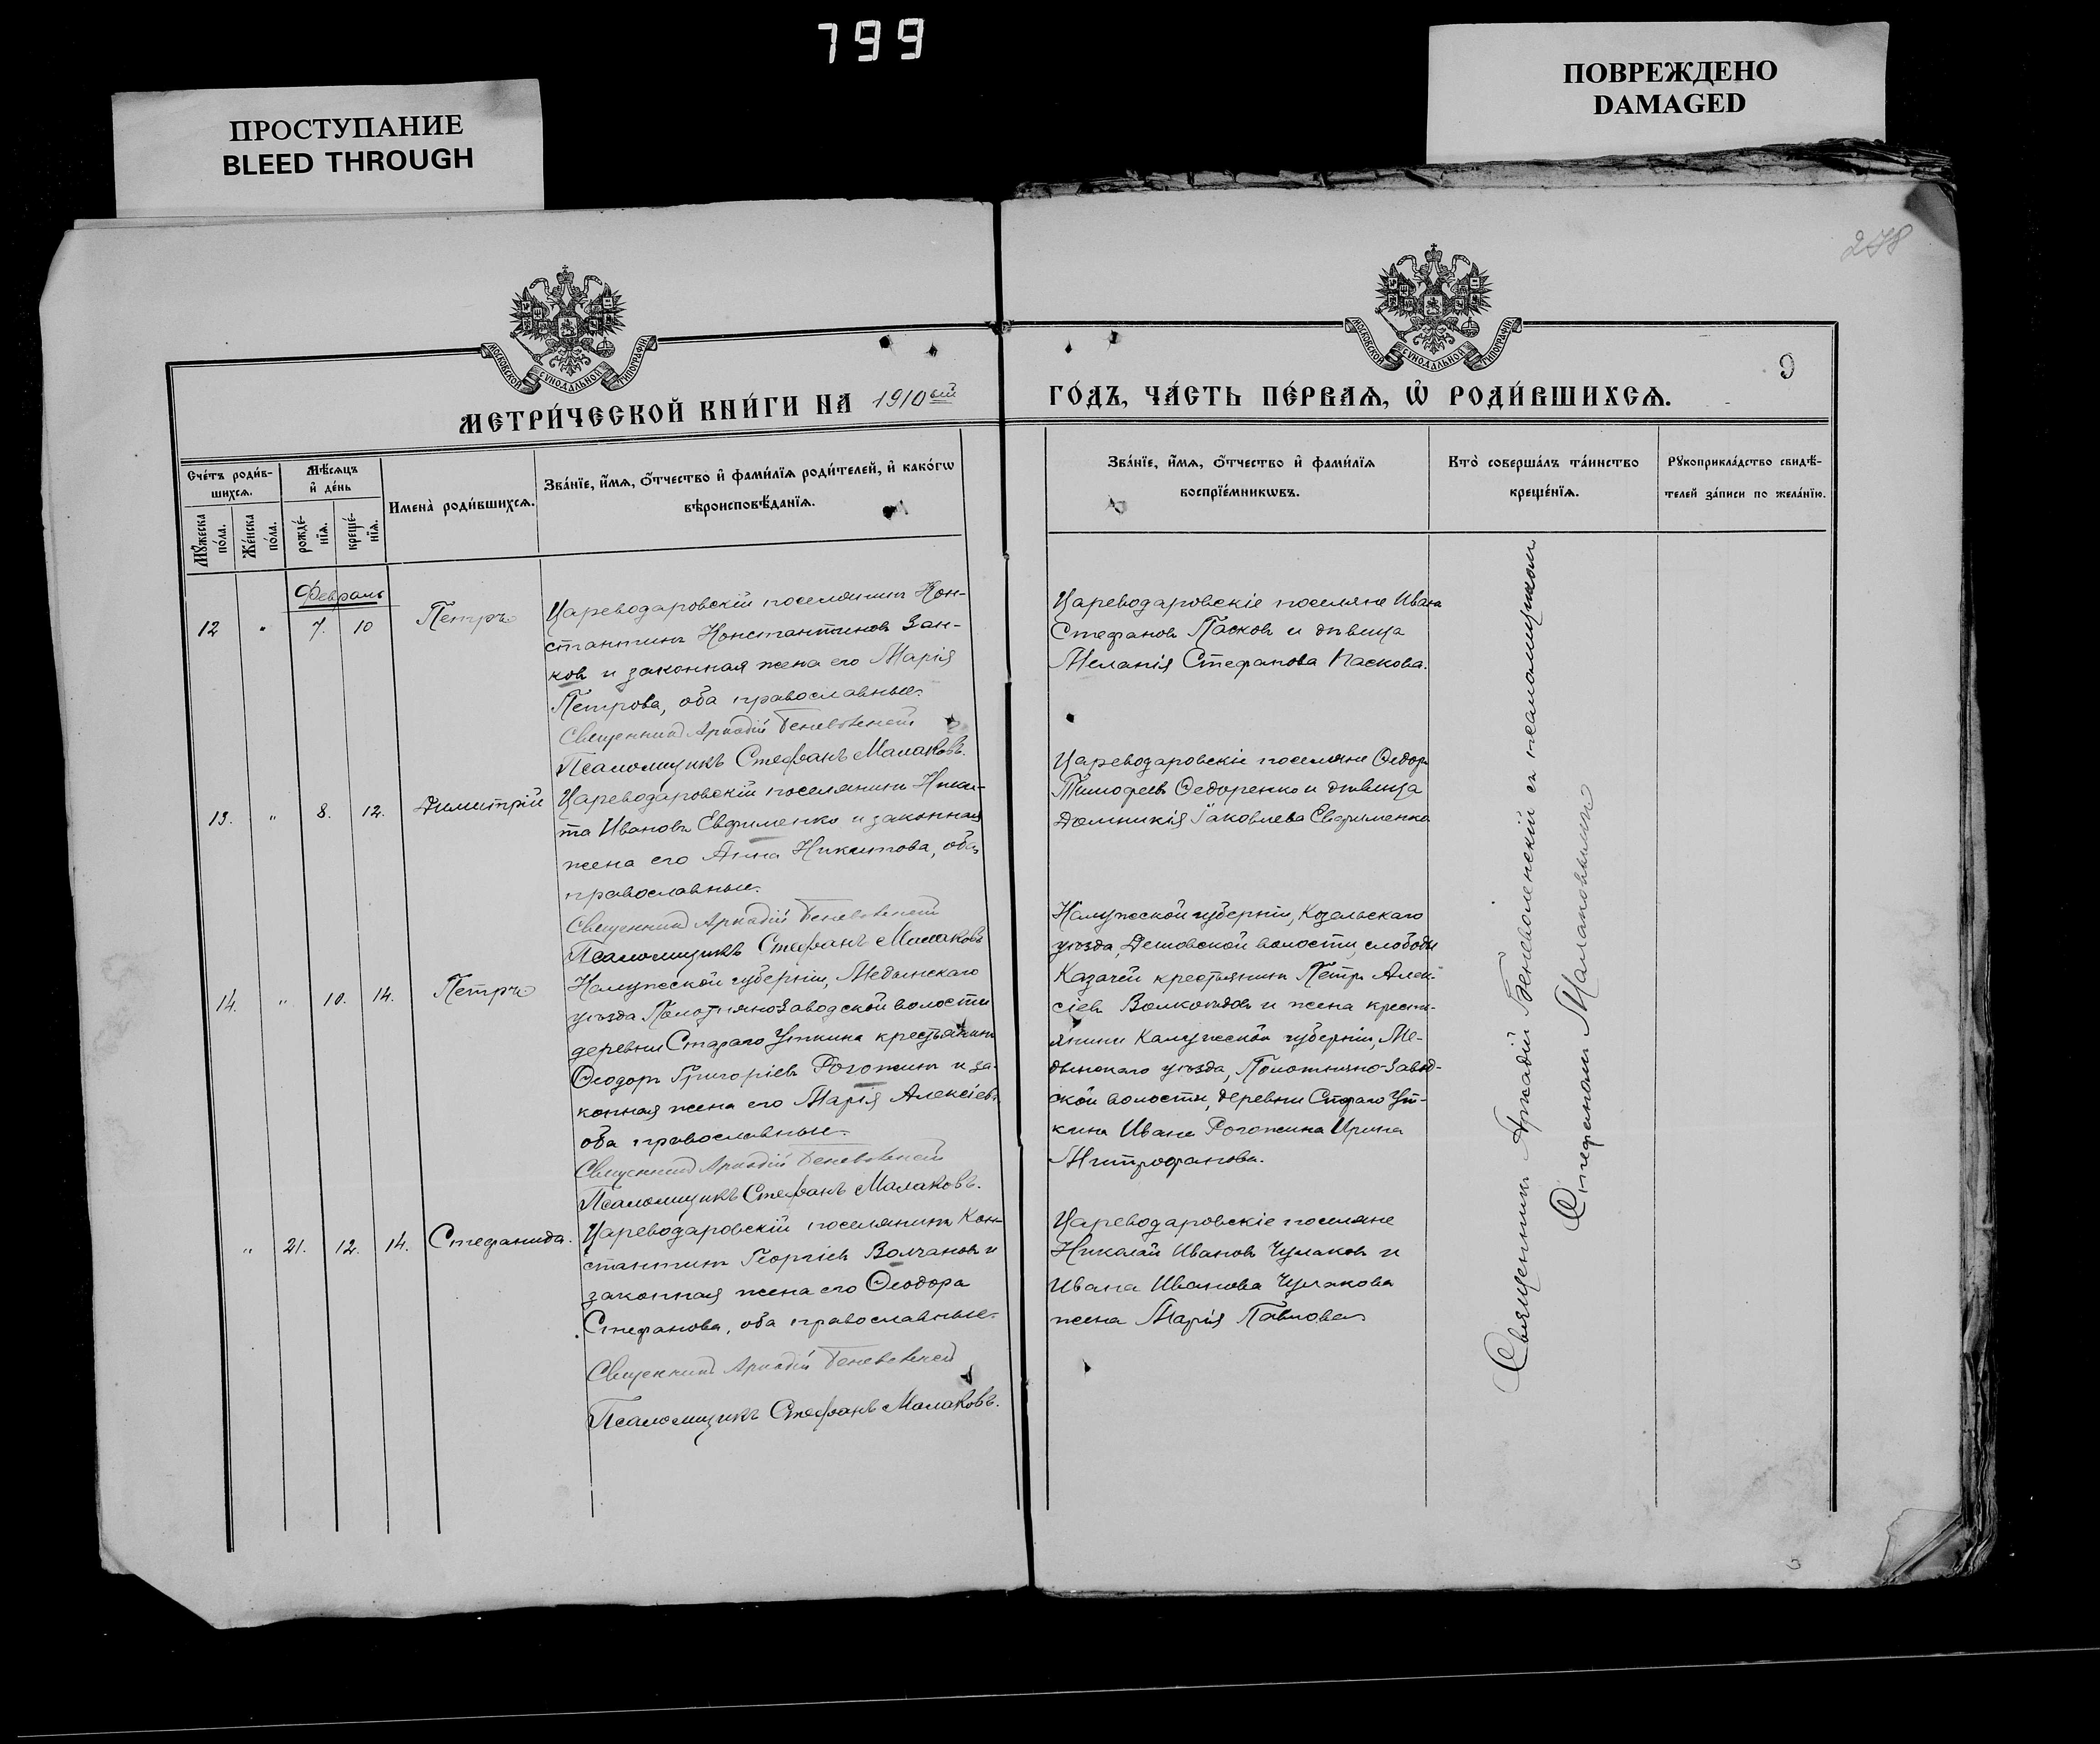 799
ПРОСТУПАНИЕ
BLEED THROUGH
ПОВРЕЖДЕНО
DAMAGED
278
9
МОСКОВСКОЙ СѴНОДАЛЬНОЙ ТИПОГРАФІИ
МОСКОВСКОЙ СѴНОДАЛЬНОЙ ТИПОГРАФІИ
МЕТРИ́ЧЕСКОЙ КНИ́ГИ НА 1910ый
ГО́ДЪ, ЧА́СТЬ ПЕ́РВАѦ, Ѡ РОДИ́ВШИХСѦ.
Сче́тъ роди́в-
шихсѧ.
Мꙋ́жеска по́ла.
Же́нска по́ла.
Мѣ́сѧцъ и де́нь
рожде́-нїѧ.
креще́-нїѧ.
Имена̀ роди́вшихсѧ.
Зва́нїе, и́мѧ, ѻ́тчество и фами́лїѧ роди́телей, и како́гѡ
вѣроисповѣ́данїѧ.
Зва́нїе, и́мѧ, ѻ́тчество и фами́лїѧ
воспрїе́мникѡвъ.
Кто̀ соверша́лъ та́инство
креще́нїѧ.
Рꙋкоприкла́дство свидѣ́-
телей за́писи по жела́нїю.
Февраль
12 " 7. 10 Петръ
Цареводаровскій поселянинъ Кон-
стантинъ Константиновъ Зан-
ковъ и законная жена его Марія
Петрова, оба православные.
Священникъ Аркадій Беневоленскій
Псаломщикъ Стефанъ Малаковъ.
Цареводаровскіе поселяне Иванъ
Стефановъ Пасковъ и дѣвица
Меланія Стефанова Паскова.
13. " 8. 12. Димитрій
Цареводаровскій поселянинъ Ники-
та Ивановъ Евфименко и законная
жена его Анна Никитова, оба
православные.
Священникъ Аркадій Беневоленскій
Псаломщикъ Стефанъ Малаковъ
Цареводаровскіе поселяне Ѳедоръ
Тимофеевъ Ѳедоренко и дѣвица
Домникія Іаковлева Евфименко
14. " 10. 14. Петръ
Калужской губерніи, Медынскаго
уѣзда Полотняно-Заводской волости
деревни Стараго Уткина крестьянинъ
Ѳеодоръ Григоріевъ Рогожинъ и за-
конная жена его Марія Алексіева
оба православные.
Священникъ Аркадій Беневоленскій
Псаломщикъ Стефанъ Малаковъ.
Калужской губерніи, Козельскаго
уѣзда, Дешовской волости, слободы
Казачей крестьянинъ Петръ Алек-
сіевъ и жена крестья-
янина Калужской губерніи, Ме-
дынскаго уѣзда, Полотняно-Завод-
ской волости, деревни Стараго Ут-
кина Ивана Рогожина Ирина
Митрофанова.
" 21. 12. 14. Стефанида.
Цареводаровскій поселянинъ Кон-
стантинъ Георгіевъ Волчановъ и
законная жена его Ѳеодора
Стефанова, оба православные.
Священникъ Аркадій Беневоленскій
Псаломщикъ Стефанъ Малаковъ.
Цареводаровскіе поселяне
Николай Ивановъ Чулаковъ и
Ивана Иванова Чулакова
жена Марія Павлова
Священникъ Аркадій Беневоленскій съ псаломщикомъ
Стефаномъ Малаковымъ